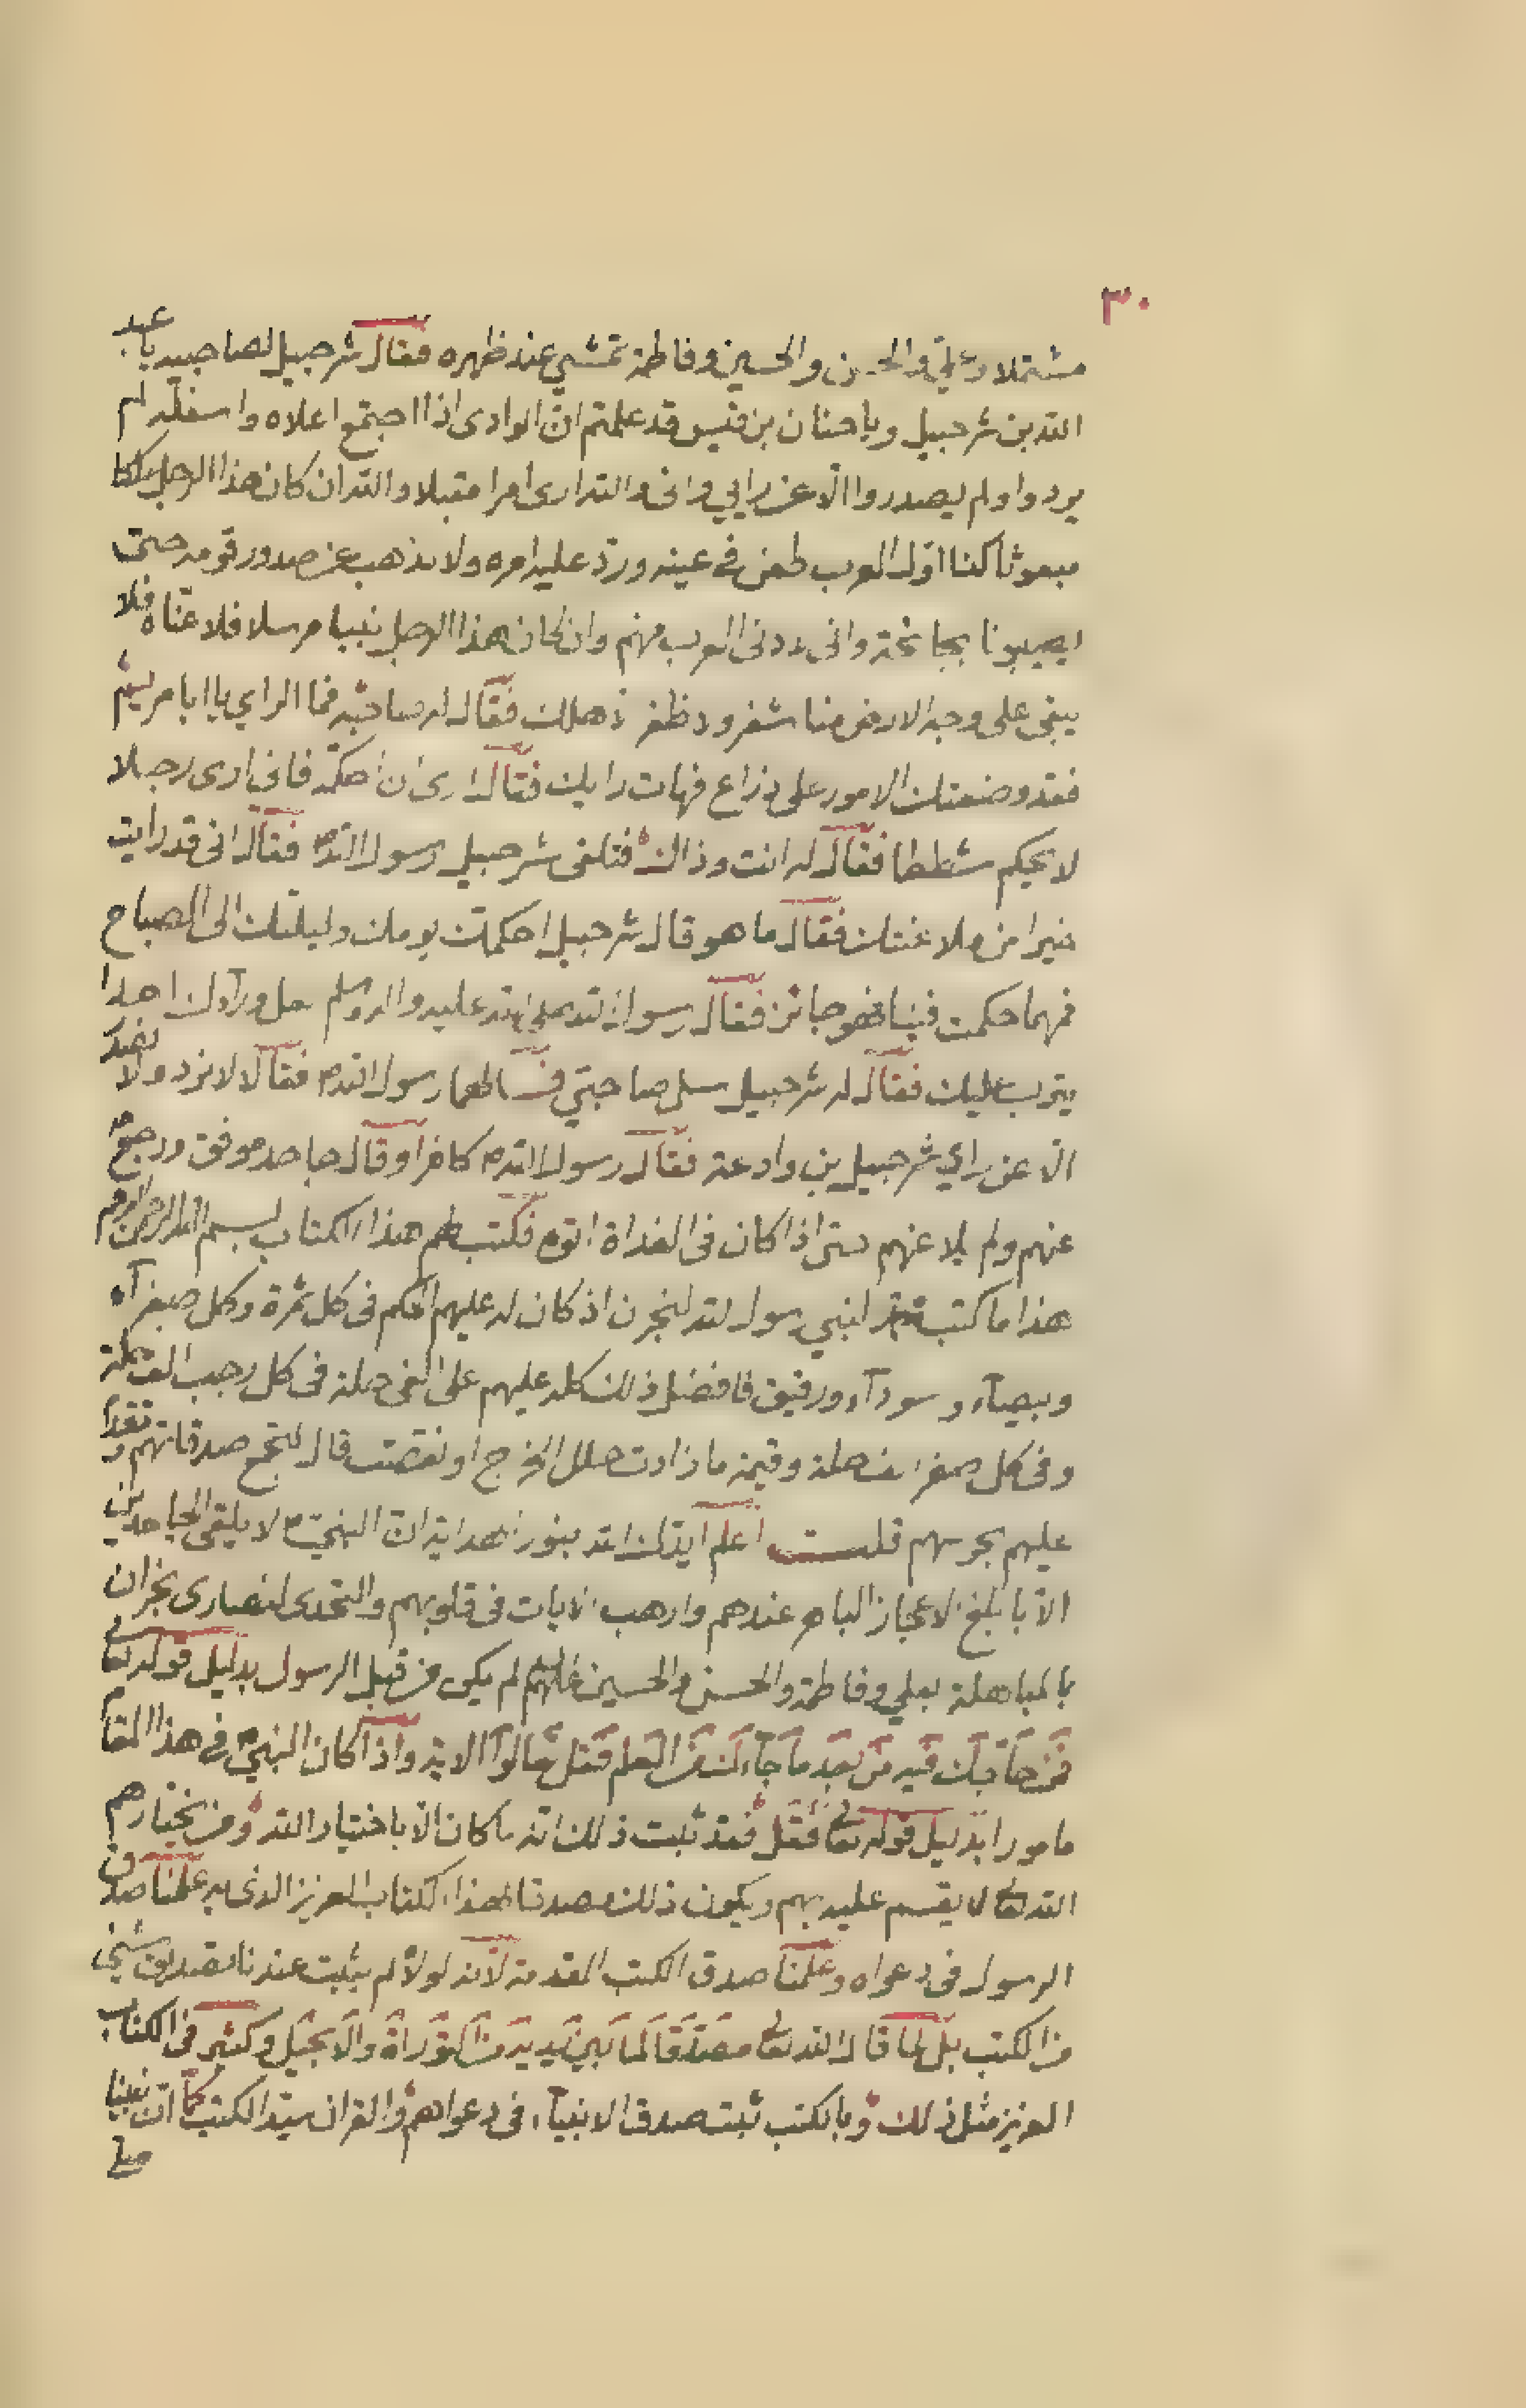 ٣٠
مشتملا وعليّ والحسن والحسين وفاطمة تمشي عند ظهره فقال شرحبيل لصاحبيه يا عبد
الله بن شرحبيل ويا حنان بن قيس قد علمتم انّ الوادى اذا اجتمع اعلاه واسفله لم
يردوا ولم يصدروا الّا عن رايي وانى والله ارى امرا مقبلا والله ان كان هذا الرجل ملكا
مبعوثا كنا اوّل العرب طعن في عينه وردّ عليه امره ولا يذهب عن صدور قومه حتى
يصيبونا بجائحة وانى ادنى العرب منهم وان كان هذا الرجل نبيا مرسلا فلاعنّاه فلا
يبقى على وجه الارض منا شفر ولا ظفر الا هلك فقال له صاحبه فما الراي يا ابا مريم
فقد وضعتك الامور على ذراع فهات رايك فقال ارى ان احكمه فانى ارى رجلا
لا يحكم شططا فقال له انت وذاك فتلقى شرحبيل رسول الله فقال انى قد رايت
خيرا من ملاعنتك فقال ما هو قال شرحبيل احكمك يومك وليلتك الى الصباح
فمهما حكمت فينا فهو جائز فقال رسول الله صلى الله عليه واله وسلم لعل ورآءك احدا
يثرب عليك فقال له شرحبيل سل صاحبي فسالهما رسول الله فقالا لا نرد ولا نصدر
الّا عن راي شرحبيل بن وادعة فقال رسول الله كافر او قال جاحد موفق ورجع
عنهم ولم يلاعنهم حتى اذا كان فى الغداة اتوه فكتب لهم هذا الكتاب بسم الله الرحمن الرحيم
هذا ما كتب محمد النبي رسول الله لنجران اذ كان له عليهم الحكم فى كل ثمرة وكل صفرآء
وبيضآء وسودآء ورقيق فافضل ذلك كله عليهم على الفى حلة فى كل رجب الف حلة
وفى كل صفر الف حلة وقيمة ما زادت حلل الخراج او نقصت قال لتجمع صدقاتهم و
عليهم بجرسهم قلت اعلم ايدك الله بنور الهداية ان النبي لا يلقى الجاحدين
الّا بابلغ الاعجاز الباهر عندهم وارهب الايات فى قلوبهم والتحدى لنصارى نجران
بالمباهلة بعلي وفاطمة والحسن والحسين لم يكن من قبل الرسول بدليل قوله تعا
فمن حاجك فيه من بعد ما جآءك من العلم فقل تعالوا الاية واذا كان النبي في هذا المقام
مامورا بدليل قوله تعا فقل فقد ثبت ذلك انه ما كان الّا باختيار الله ومن يختارهم
الله تعا لا يقسم عليه بهم ويكون ذلك مصدقا لهذا الكتاب العزيز الذى به علمنا صدق
الرسول فى دعواه وعلمنا صدق الكتب المقدمة لانه لولا لم يثبت عندنا تصديق شيئ
من الكتب بل لما قال الله تعا مصدقا لما بين يديه من التوراة والانجيل وكثير فى الكتاب
العزيز مثل ذلك وبالكتب ثبت صدق الانبيآء فى دعواهم والقران سيّد الكتب كما انّ نبينا